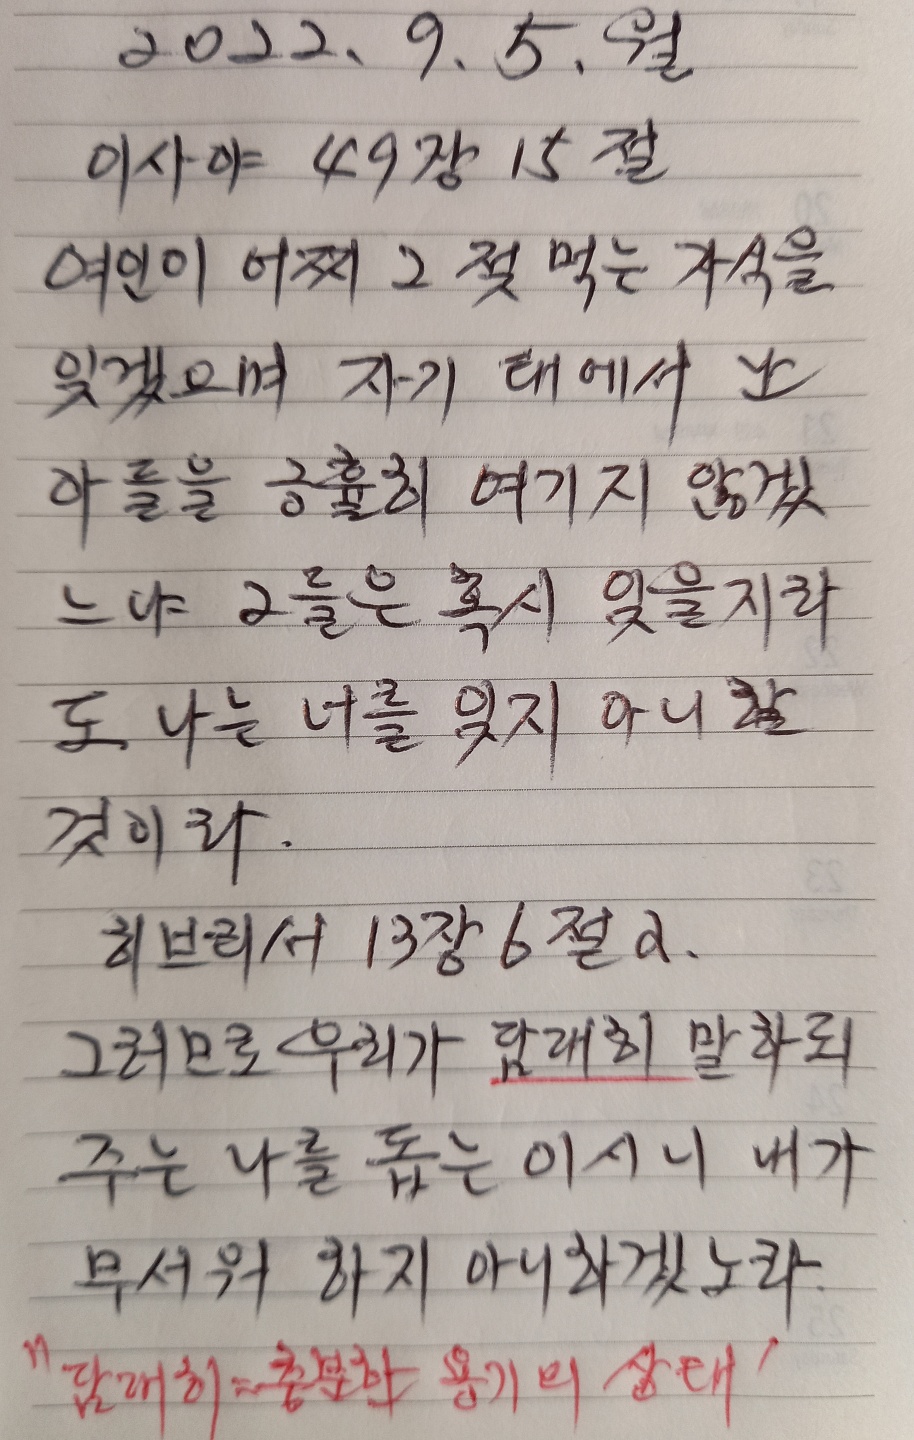 2022. 9. 5. 월
이사야 49장 15절
여인이 어찌 그 젖 먹는 자식을
잊겠으며 자기 태에서 난
아들을 긍휼히 여기지 않겠
느냐 그들은 혹시 잊을지라
도 나는 너를 잊지 아니할
것이라.
히브리서 13장 6절 2.
그러므로 우리가 담대히 말하되
주는 나를 돕는 이시니 내가
무서워 하지 아니하겠노라.
"담대히=충분한 용기의 상태'